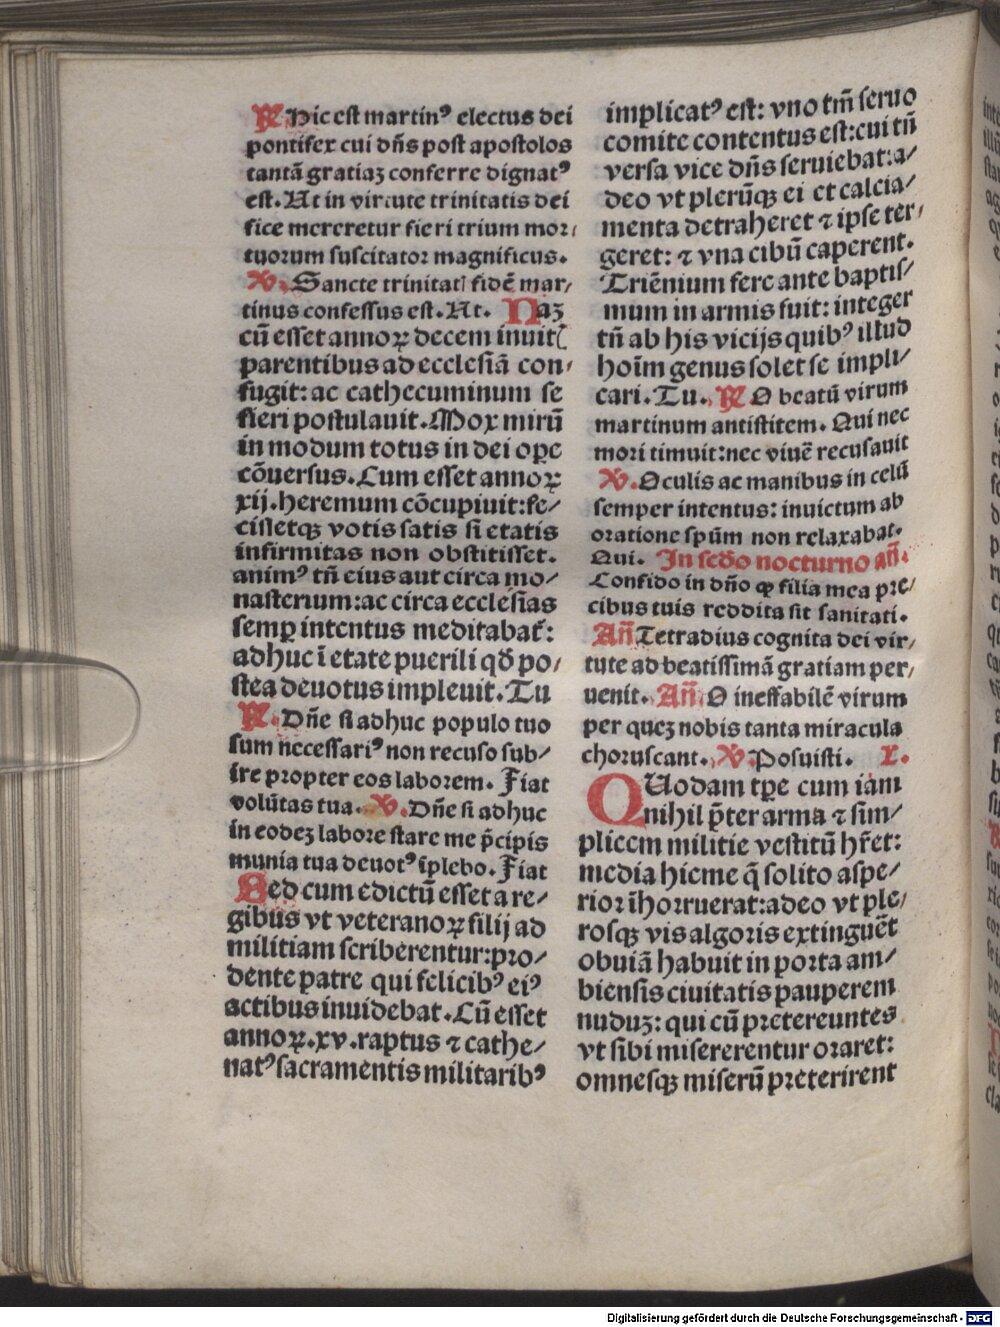 ℟ Hic est martinꝰ electus dei
pontifex cui dñs post apostolos
tantã gratiaꝫ conferre dignatꝰ
est. Ut in virtute trinitatis dei
fice mereretur fieri trium mor⸗
tuorum suscitator magnificus.
℣. Sancte trinitatꝭ fidẽ mar⸗
tinus confessus est. Ut. Naꝫ
cũ esset annoꝝ decem inuitꝭ
parentibus ad ecclesiã con⸗
fugit: ac cathecuminum se
fieri postulauit. Mox mirũ
in modum totus in dei ope
cõuersus. Cum esset annoꝝ
xij. heremum cõcupiuit: fe⸗
cissetqꝫ votis satis si etatis
infirmitas non obstitisset.
animꝰ tñ eius aut circa mo⸗
nasterium: ac circa ecclesias
semꝑ intentus meditabat̃:
adhuc ĩ etate puerili qđ po⸗
stea deuotus impleuit. Tu
℟. Dñe si adhuc populo tuo
sum necessariꝰ non recuso sub⸗
ire propter eos laborem. Fiat
volũtas tua. ℣. Dñe si adhuc
in eodeꝫ labore stare me p̃cipis
munia tua deuotꝰ ĩplebo. Fiat
Sed cum edictũ esset a re⸗
gibus vt veteranoꝝ filij ad
militiam scriberentur: pro⸗
dente patre qui felicibꝰ eiꝰ
actibus inuidebat. Cũ esset
annoꝝ. xv. raptus ⁊ cathe⸗
natꝰ sacramentis militaribꝰ
implicatꝰ est: vno tm̃ seruo
comite contentus est: cui tñ
versa vice dñs seruiebat: a⸗
deo vt plerũqꝫ ei et calcia⸗
menta detraheret ⁊ ipse ter⸗
geret: ⁊ vna cibũ caperent.
Triẽnium fere ante baptis⸗
mum in armis fuit: integer
tñ ab his vicijs quibꝰ illud
hoĩm genus solet se impli⸗
cari. Tu. ℟ O beatũ virum
martinum antistitem. Qui nec
mori timuit: nec viuẽ recusauit
℣. Oculis ac manibus in celũ
semper intentus: inuictum ab
oratione spũm non relaxabat.
Qui. In scđo nocturno añ.
Confido in dño ꝙ filia mea pre⸗
cibus tuis reddita sit sanitati.
Añ Tetradius cognita dei vir⸗
tute ad beatissimã gratiam per⸗
uenit. Añ O ineffabilẽ virum
per queꝫ nobis tanta miracula
choruscant. ℣. Posuisti. L.
QUodam tꝑe cum iam
nihil p̃ter arma ⁊ sim⸗
plicem militie vestitũ hr̃et:
media hieme q̃ solito aspe⸗
rior ĩhorruerat: adeo vt ple⸗
rosqꝫ vis algoris extinguẽt
obuiã habuit in porta am⸗
biensis ciuitatis pauperem
nuduꝫ: qui cũ pretereuntes
vt sibi misererentur oraret:
omnesqꝫ miserũ preterirent
Digitalisierung gefördert durch die Deutsche Forschungsgemeinschaft - DFG